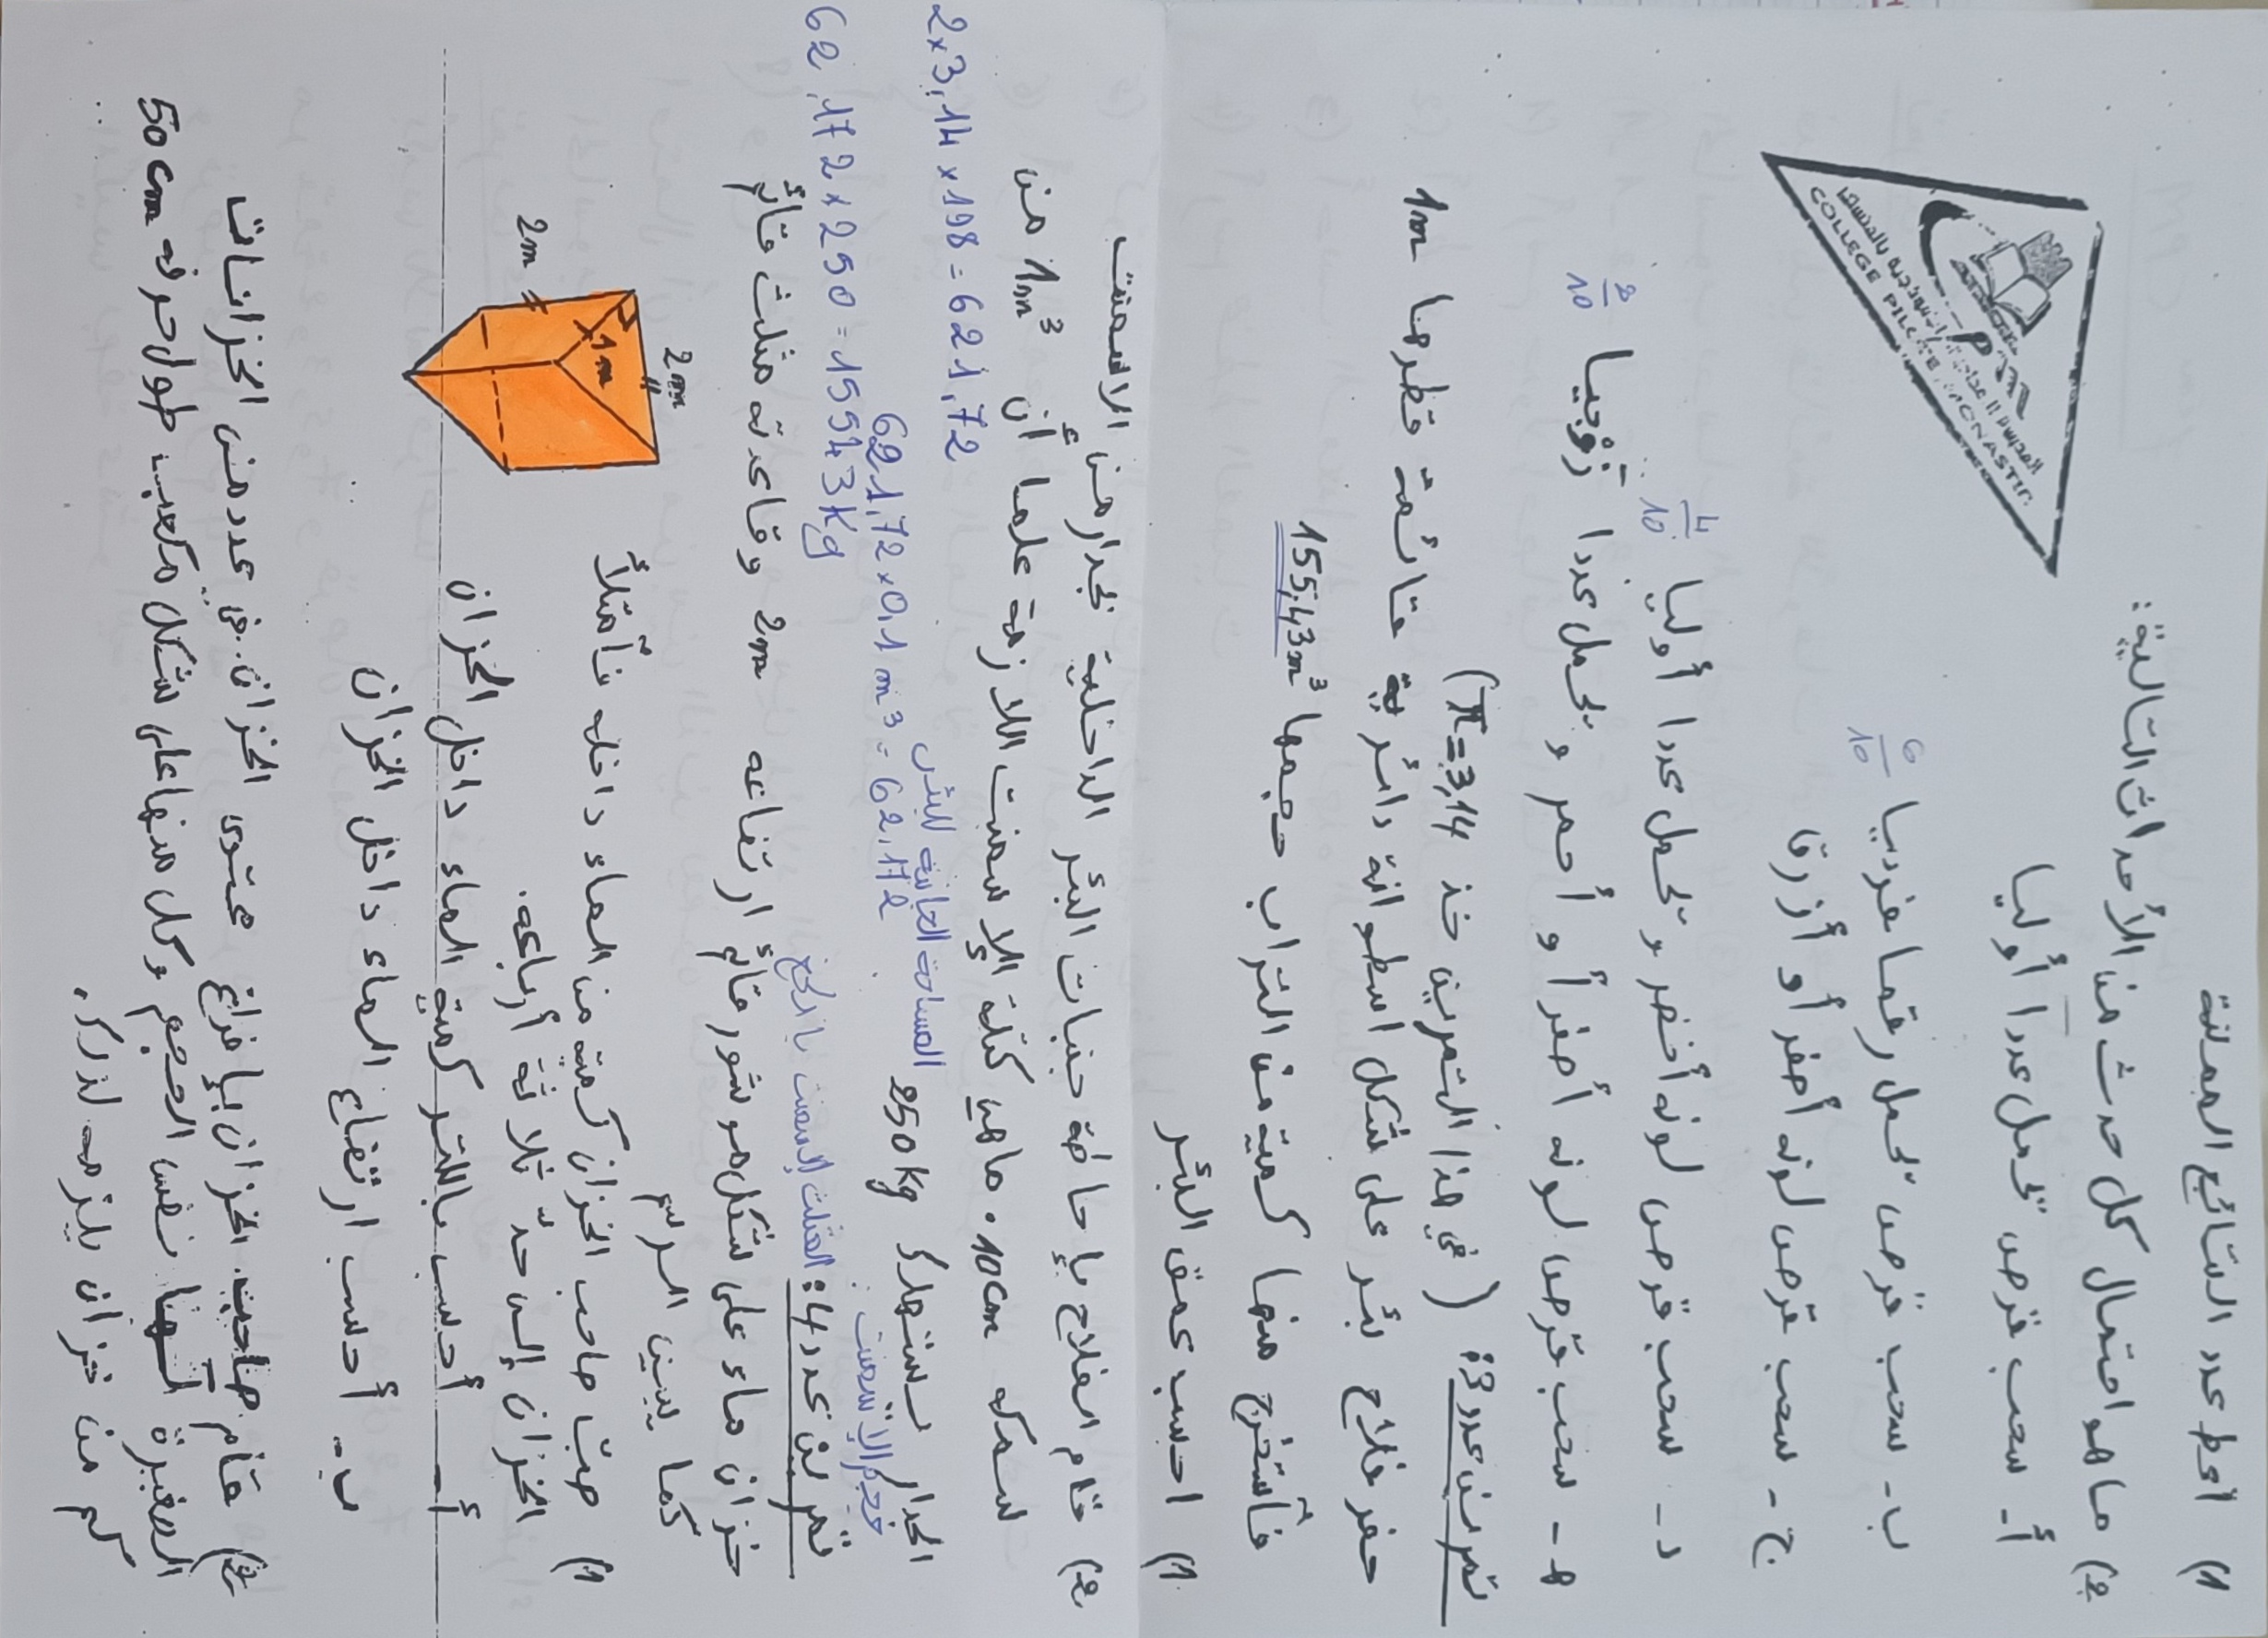 المدرسة الإعدادية النموذجية بالمنستير
COLLEGE PILOTE MONASTIR
1) أعط عدد النتائج الممكنة
2) ما هو احتمال كل حدث من الأحداث التالية:
أ - سحب قرص يحمل عددا أوليا
ب - سحب قرص يحمل رقما فرديا 6/10
ج - سحب قرص لونه أصفر أو أزرق
د - سحب قرص لونه أخضر و يحمل عددا أوليا 4/10
هـ - سحب قرص لونه أصفر أو أحمر و يحمل عددا زوجيا 2/10
تمرين عدد 3: (في هذا التمرين خذ π=3,14)
حفر فلاح بئر على شكل اسطوانة دائرية قائمة قطرها 1m
فاستخرج منها كمية من التراب حجمها 155,43m³
1) احسب عمق البئر
2) قام الفلاح بإحاطة جنبات البئر الداخلية بجدار من الاسمنت
سمكه 10cm. ماهي كتلة الإسمنت اللازمة علما أن 1m³ من
الجدار يستهلك 250kg
المساحة الجانبية للبئر 2×3,14×198=621,72
حجم الإسمنت: 621,72×0,1m³=62,172
62,172×250=15543Kg
تمرين عدد 4:
خزان ماء على شكل موشور قائم ارتفاعه 2m وقاعدته مثلث قائم
كما يبين الرسم
2m
1m
2m
1) صبّ صاحب الخزان كمية من الماء داخله فامتلأ
الخزان إلى حدّ ثلاثة أرباعه.
أ - أحسب باللتر كمية الماء داخل الخزان
ب - أحسب ارتفاع الماء داخل الخزان
2) قام صاحب الخزان بإفراغ محتوى الخزان في عدد من الخزانات
الصغيرة لها نفس الحجم وكل منها على شكل مكعب طول حرفه 50cm
كم من خزان يلزمه لذلك.